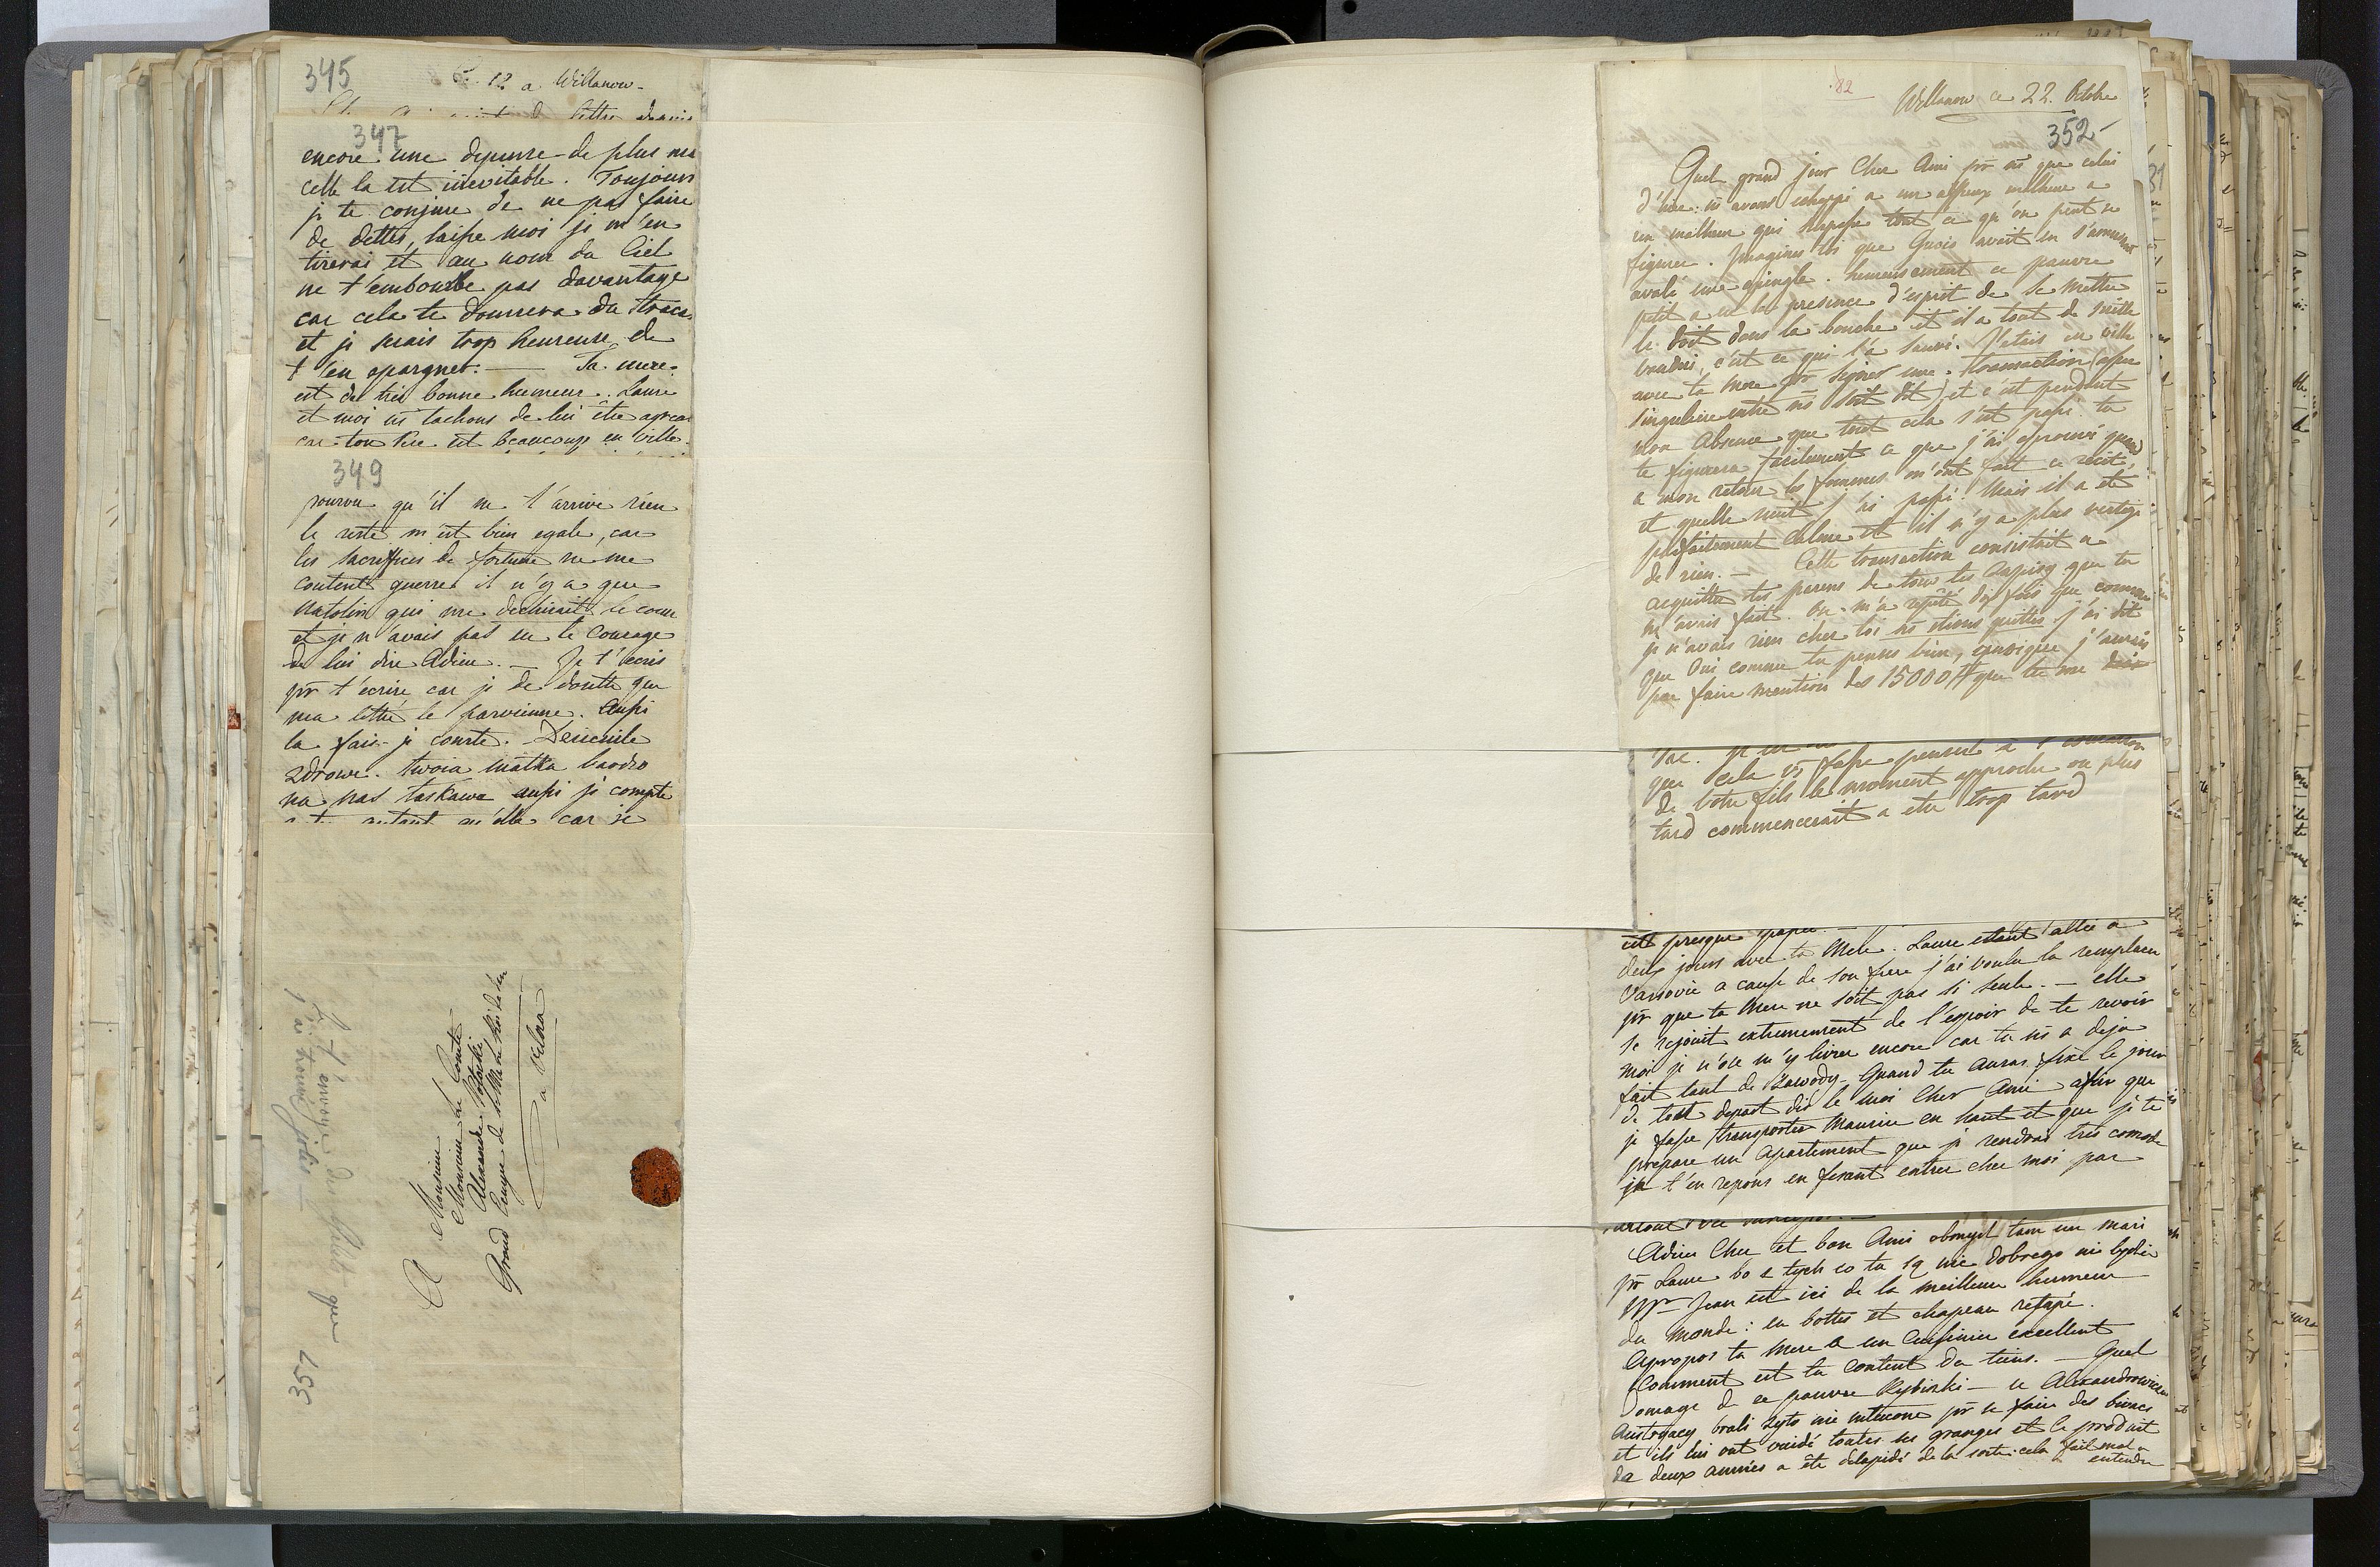 345
Ce 12 a Willanow-
lettre depuis
347
encore une depense de plus mais
celle la est inevitable. Toujours
je te conjure de ne pas faire
de dettes, laisse moi je m'en
tirerai et au nom du Ciel
ne t'embourbe pas davantage
car cela te donnera du tracas
et je serais trop heureuse de
t'en epargner. — Ta mere
est de tres bonne humeur. Laure
et moi ns tachons de lui être agrea
car ton Pere est beaucoup en ville.
349
pourvu qu'il ne t'arrive rien
le reste m'est bien egale, car
les sacriffices de fortune ne me
coutent guerres il n'y a que
Natolin qui me dechirait le coeur
et je n'avais pas eu le courage
de lui dire Adieu. — Je t'ecris
pr t'ecrire car je de doutte que
ma lettre te parvienne. Aussi
la fais-je courte.
zdrowe. twoia Matka bardzo
na nas łaskawa aussi je compte
autant qu'elle car je
A Monsieur
Monsieur le Comte
Alexandre Potocki
Grand Ecuyer de S. M. le Roi de
a Vilna
Je t'envoye un billet que
j'ai trouvé
351
82
Willanow ce 22. Octobre
352
Quel grand jour Cher Ami pr ns que celui
d'hier: ns avons echappé a un affreux malheur a
un malheur qui surpasse tout ce qu'on peut se
figurer. Imagines toi que Gucio avait en s'amusant
avalé une epingle. heureusement ce pauvre
petit a eu la presence d'esprit de se mettre
le doit dans la bouche et il a tout de suitte
vomi, c'est ce qui l'a sauvé. J'etais en ville
avec ta Mere pr signer une transaction (assez
singuliere entre ns soit dit) et c'est pendant
mon Absence que tout cela s'est passé. tu
te figurera facilement ce que j'ai eprouvé quand
a mon retour les femmes m'ont fait ce recit,
et quelle nuit j'ai passé. Mais il a eté
parfaitement calme et il n'y a plus vertige
de rien. — Cette transaction consistait a
acquitter tes parens de tous les Zapisy que tu
m'avais fait. On m'a repété dix fois que comme
je n'avais rien cher toi ns etions quittes j'ai dit
que Oui comme tu penses bien, quoique j'aurais
pu faire mention des 15000 # que tu me dois
que cela vs fasse penser a l'education
de votre fils le moment approche ou plus
tard commencerait a etre trop tard
est presque
deux jours avec ta Mere. Laure etant allée a
Varsovie a cause de son frere j'ai voulu la remplacer
pr que ta Mere ne soit pas si seule. — elle
se rejouit extremement de l'espoir de te revoir
moi je n'ose m'y livrer encore car tu ns a deja
fait tant de Zawody. Quand tu auras fixé le jour
de tont depart dis le moi Cher Ami afin que
je fasse transporter Maurice en haut et que je te
prepare un Apartement que je rendrai très comode
je t'en repons en fesant entrer cher moi par
surtout
Adieu Cher et bon Ami obmysl tam un mari
pr Laure bo z tych co tu są nic dobrego nie będzie
Mr Jean est ici de la meilleure humeur
du Monde: en bottes et chapeau retapé.
Apropos ta Mere a un Cuisinier excellent
Comment est tu content du tiens. — Quel
Domage de ce pauvre Rybinski — a Alexandrowice
Austryacy brali pr se faire des
et ils lui ont vuidé toutes ses granges et le produit
de deux années a été delapidé de la sorte: cela fait mal a
entendre